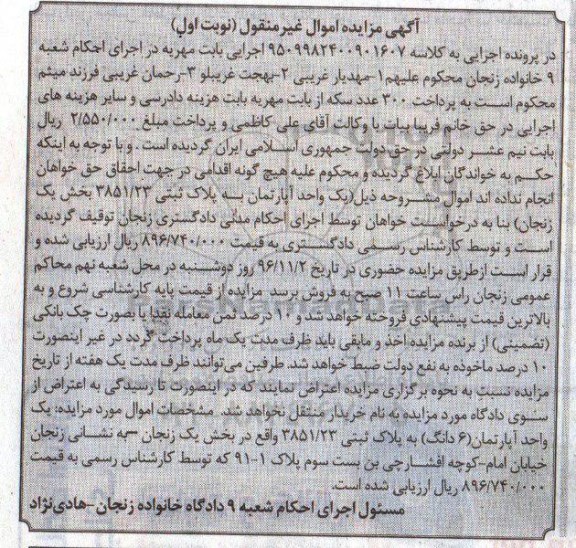 آگهی مزایده اموال غیرمنقول (نوبت اول)
در پرونده اجرایی به کلاسه ۹۵۰۹۹۸۲۴۰۰۹۰۱۶۰۷ اجرایی بابت مهریه در اجرای احکام شعبه
۹ خانواده زنجان محکوم علیهم۱-مهدیار غریبی ۲-بهجت غریبلو ۳-رحمان غریبی فرزند میثم
محکوم است به پرداخت ۳۰۰ عدد سکه از بابت مهریه بابت هزینه دادرسی و سایر هزینه های
اجرایی در حق خانم فریبا بیات با وکالت آقای علی کاظمی و پرداخت مبلغ ۲/۵۵۰/۰۰۰ ریال
بابت نیم عشر دولتی در حق دولت جمهوری اسلامی ایران گردیده است . و با توجه به اینکه
حکم به خواندگان ابلاغ گردیده و محکوم علیه هیچ گونه اقدامی در جهت احقاق حق خواهان
انجام نداده اند اموال مشروحه ذیل(یک واحد آپارتمان به پلاک ثبتی ۳۸۵۱/۲۳ بخش یک
زنجان) بنا به درخواست خواهان توسط اجرای احکام مدنی دادگستری زنجان توقیف گردیده
است و توسط کارشناس رسمی دادگستری به قیمت ۸۹۶/۷۴۰/۰۰۰ ریال ارزیابی شده و
قرار است ازطریق مزایده حضوری در تاریخ ۹۶/۱۱/۲ روز دوشنبه در محل شعبه نهم محاکم
عمومی زنجان راس ساعت ۱۱ صبح به فروش برسد مزایده از قیمت پایه کارشناسی شروع و به
بالاترین قیمت پیشنهادی فروخته خواهد شد و ۱۰ درصد ثمن معامله نقدا یا بصورت چک بانکی
(تضمینی) از برنده مزایده اخذ و مابقی باید ظرف مدت یک ماه پرداخت گردد در غیر اینصورت
۱۰ درصد ماخوذه به نفع دولت ضبط خواهد شد. طرفین می‌توانند ظرف مدت یک هفته از تاریخ
مزایده نسبت به نحوه برگزاری مزایده اعتراض نمایند که در اینصورت تا رسیدگی به اعتراض از
سوی دادگاه مورد مزایده به نام خریدار منتقل نخواهد شد. مشخصات اموال مورد مزایده: یک
واحد آپارتمان(۶ دانگ) به پلاک ثبتی ۳۸۵۱/۲۳ واقع در بخش یک زنجان –به نشانی زنجان
خیابان امام-کوچه افشارچی بن بست سوم پلاک ۱-۹۱ که توسط کارشناس رسمی به قیمت
۸۹۶/۷۴۰/۰۰۰ ریال ارزیابی شده است.
مسئول اجرای احکام شعبه ۹ دادگاه خانواده زنجان-هادی‌نژاد